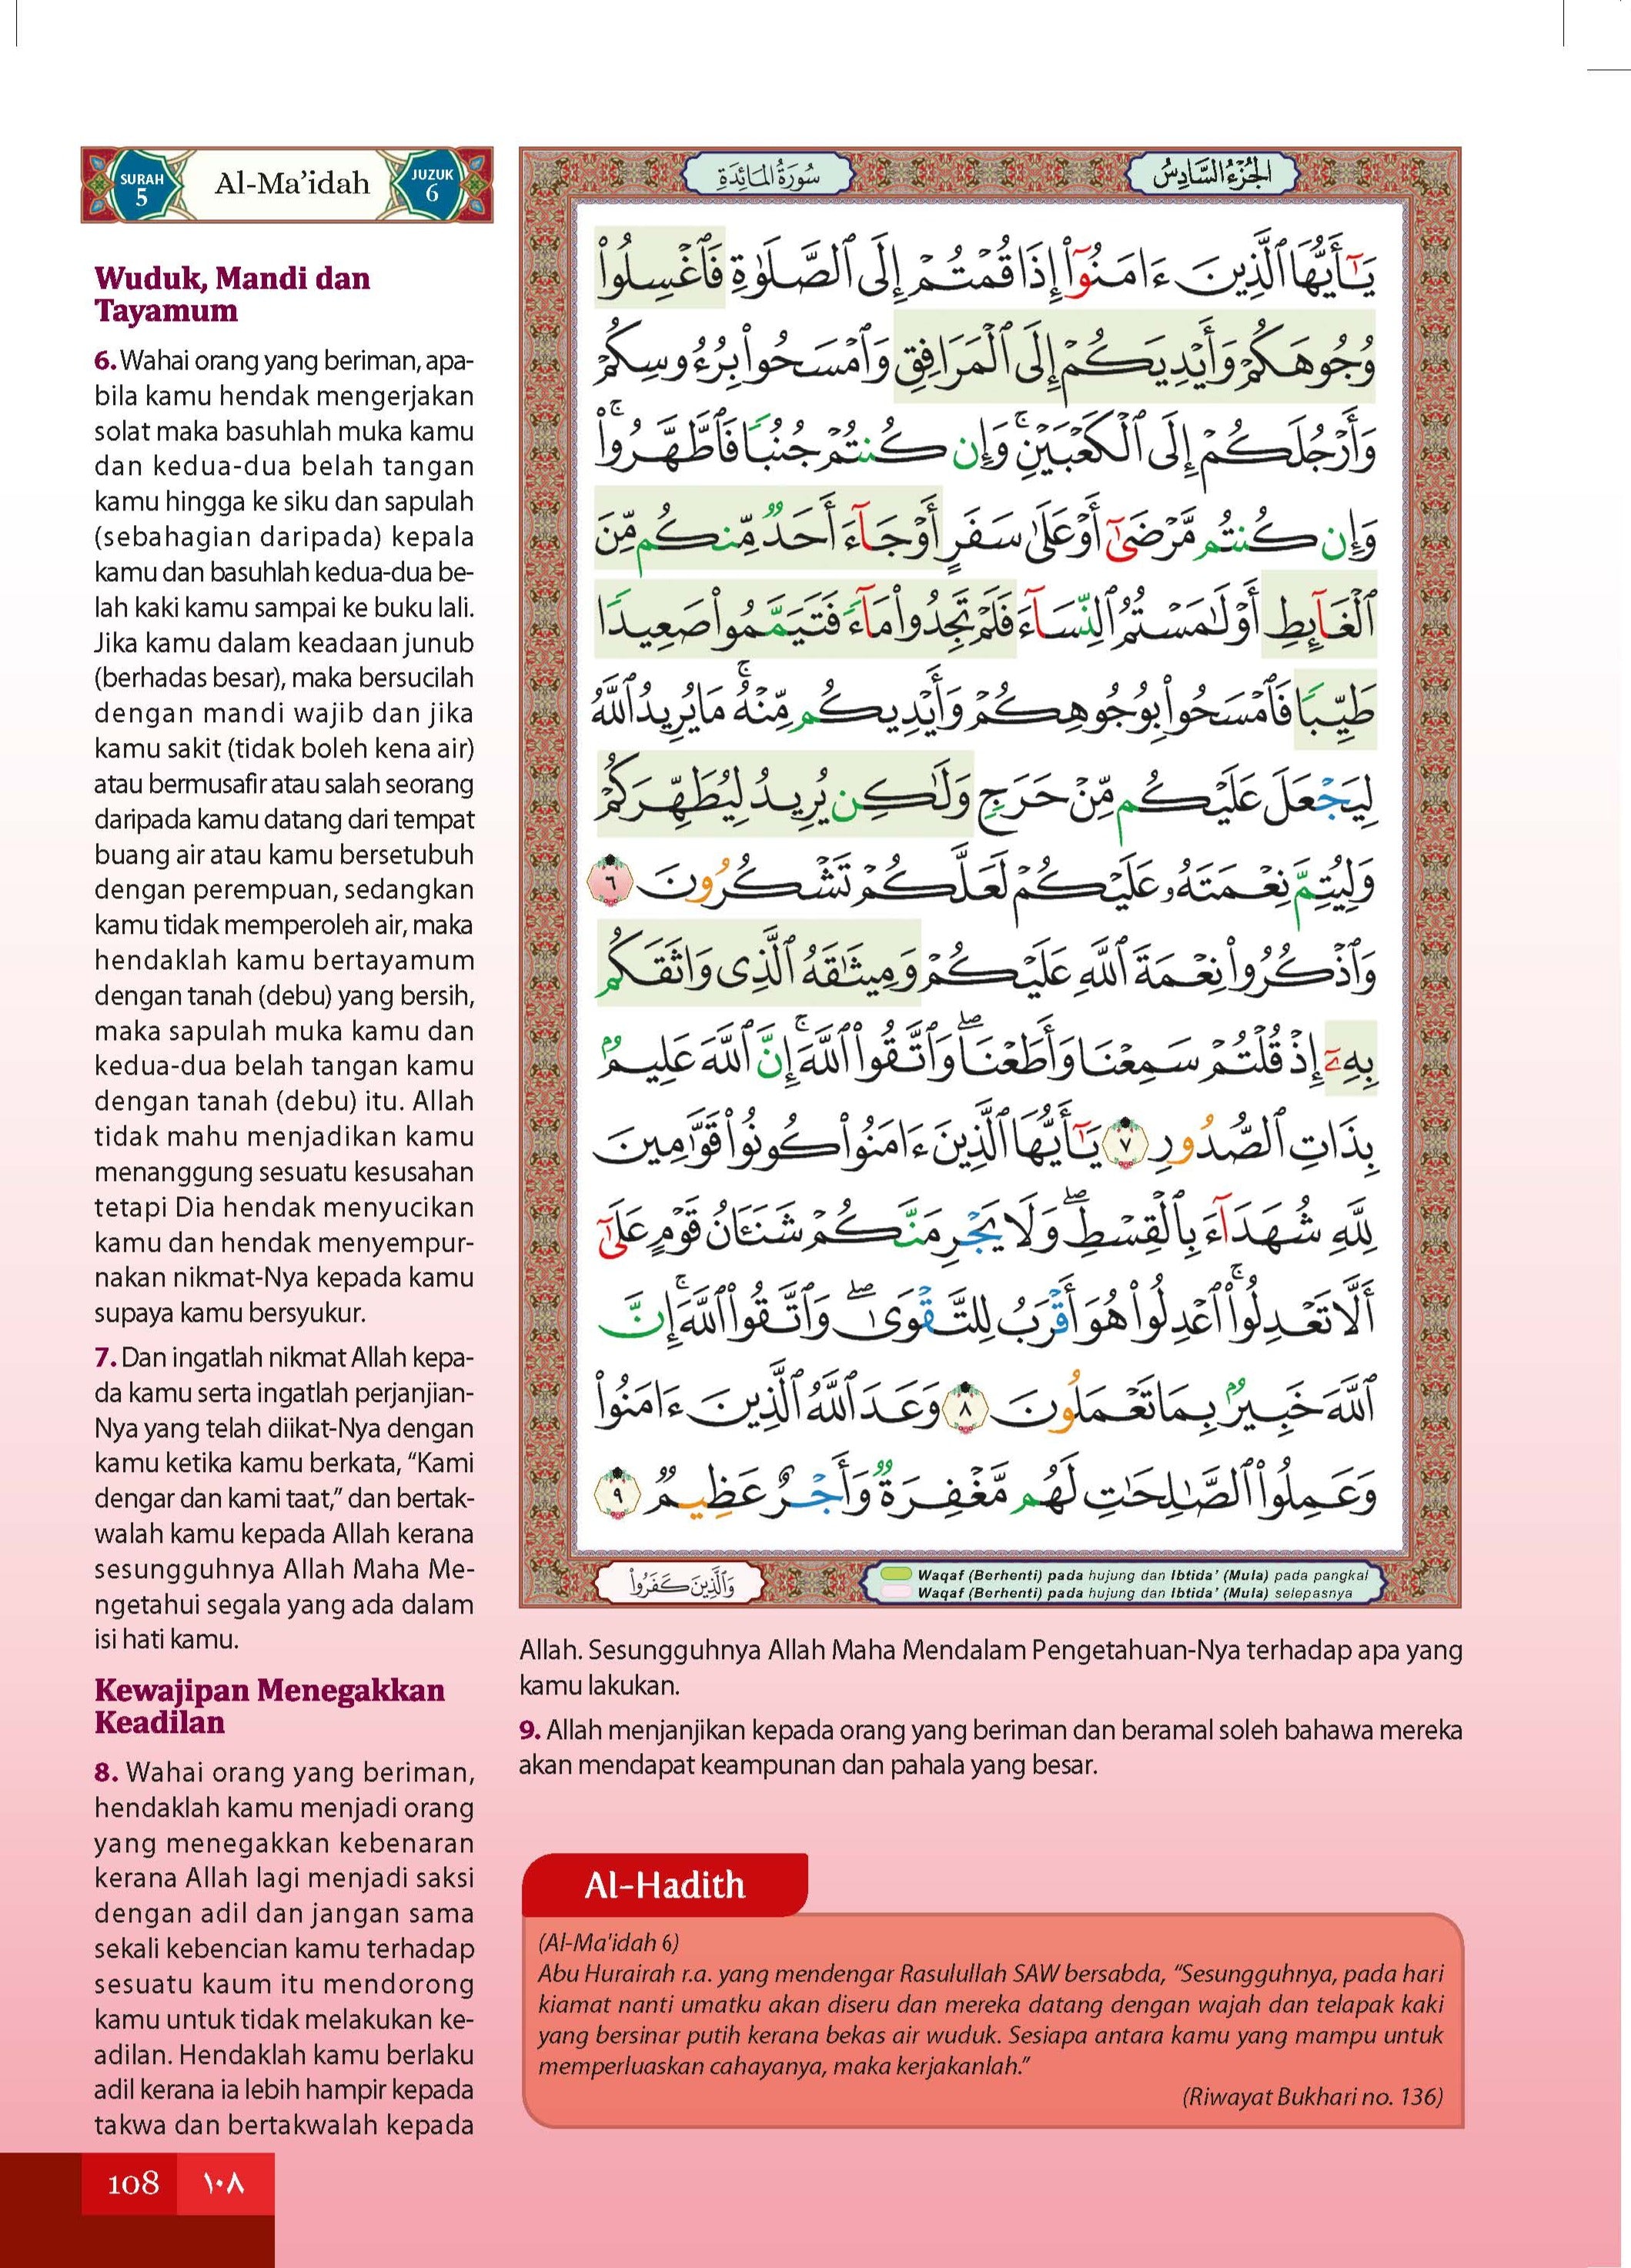 SURAH
5
Al-Ma’idah
JUZUK
6
Wuduk, Mandi dan
Tayamum
6. Wahai orang yang beriman, apa-
bila kamu hendak mengerjakan
solat maka basuhlah muka kamu
dan kedua-dua belah tangan
kamu hingga ke siku dan sapulah
(sebahagian daripada) kepala
kamu dan basuhlah kedua-dua be-
lah kaki kamu sampai ke buku lali.
Jika kamu dalam keadaan junub
(berhadas besar), maka bersucilah
dengan mandi wajib dan jika
kamu sakit (tidak boleh kena air)
atau bermusafir atau salah seorang
daripada kamu datang dari tempat
buang air atau kamu bersetubuh
dengan perempuan, sedangkan
kamu tidak memperoleh air, maka
hendaklah kamu bertayamum
dengan tanah (debu) yang bersih,
maka sapulah muka kamu dan
kedua-dua belah tangan kamu
dengan tanah (debu) itu. Allah
tidak mahu menjadikan kamu
menanggung sesuatu kesusahan
tetapi Dia hendak menyucikan
kamu dan hendak menyempur-
nakan nikmat-Nya kepada kamu
supaya kamu bersyukur.
7. Dan ingatlah nikmat Allah kepa-
da kamu serta ingatlah perjanjian-
Nya yang telah diikat-Nya dengan
kamu ketika kamu berkata, “Kami
dengar dan kami taat,” dan bertak-
walah kamu kepada Allah kerana
sesungguhnya Allah Maha Me-
ngetahui segala yang ada dalam
isi hati kamu.
Kewajipan Menegakkan
Keadilan
8. Wahai orang yang beriman,
hendaklah kamu menjadi orang
yang menegakkan kebenaran
kerana Allah lagi menjadi saksi
dengan adil dan jangan sama
sekali kebencian kamu terhadap
sesuatu kaum itu mendorong
kamu untuk tidak melakukan ke-
adilan. Hendaklah kamu berlaku
adil kerana ia lebih hampir kepada
takwa dan bertakwalah kepada
الجُزْءُ السَّادِسُ
سُورَةُ المَائِدَةِ
يَـٰٓأَيُّهَا ٱلَّذِينَ ءَامَنُوٓا۟ إِذَا قُمْتُمْ إِلَى ٱلصَّلَوٰةِ فَٱغْسِلُوا۟
وُجُوهَكُمْ وَأَيْدِيَكُمْ إِلَى ٱلْمَرَافِقِ وَٱمْسَحُوا۟ بِرُءُوسِكُمْ
وَأَرْجُلَكُمْ إِلَى ٱلْكَعْبَيْنِ ۚ وَإِن كُنتُمْ جُنُبًا فَٱطَّهَّرُوا۟ ۚ
وَإِن كُنتُم مَّرْضَىٰٓ أَوْ عَلَىٰ سَفَرٍ أَوْ جَآءَ أَحَدٌ مِّنكُم مِّنَ
ٱلْغَآئِطِ أَوْ لَـٰمَسْتُمُ ٱلنِّسَآءَ فَلَمْ تَجِدُوا۟ مَآءً فَتَيَمَّمُوا۟ صَعِيدًا
طَيِّبًا فَٱمْسَحُوا۟ بِوُجُوهِكُمْ وَأَيْدِيكُم مِّنْهُ ۚ مَا يُرِيدُ ٱللَّهُ
لِيَجْعَلَ عَلَيْكُم مِّنْ حَرَجٍ وَلَـٰكِن يُرِيدُ لِيُطَهِّرَكُمْ
وَلِيُتِمَّ نِعْمَتَهُۥ عَلَيْكُمْ لَعَلَّكُمْ تَشْكُرُونَ ٦
وَٱذْكُرُوا۟ نِعْمَةَ ٱللَّهِ عَلَيْكُمْ وَمِيثَـٰقَهُ ٱلَّذِى وَاثَقَكُم
بِهِۦٓ إِذْ قُلْتُمْ سَمِعْنَا وَأَطَعْنَا ۖ وَٱتَّقُوا۟ ٱللَّهَ ۚ إِنَّ ٱللَّهَ عَلِيمٌۢ
بِذَاتِ ٱلصُّدُورِ ٧ يَـٰٓأَيُّهَا ٱلَّذِينَ ءَامَنُوا۟ كُونُوا۟ قَوَّٰمِينَ
لِلَّهِ شُهَدَآءَ بِٱلْقِسْطِ ۖ وَلَا يَجْرِمَنَّكُمْ شَنَـَٔانُ قَوْمٍ عَلَىٰٓ
أَلَّا تَعْدِلُوا۟ ۚ ٱعْدِلُوا۟ هُوَ أَقْرَبُ لِلتَّقْوَىٰ ۖ وَٱتَّقُوا۟ ٱللَّهَ ۚ إِنَّ
ٱللَّهَ خَبِيرٌۢ بِمَا تَعْمَلُونَ ٨ وَعَدَ ٱللَّهُ ٱلَّذِينَ ءَامَنُوا۟
وَعَمِلُوا۟ ٱلصَّـٰلِحَـٰتِ ۙ لَهُم مَّغْفِرَةٌ وَأَجْرٌ عَظِيمٌ ٩
وَالَّذِينَ كَفَرُوا۟
Waqaf (Berhenti) pada hujung dan Ibtida’ (Mula) pada pangkal
Waqaf (Berhenti) pada hujung dan Ibtida’ (Mula) selepasnya
Allah. Sesungguhnya Allah Maha Mendalam Pengetahuan-Nya terhadap apa yang
kamu lakukan.
9. Allah menjanjikan kepada orang yang beriman dan beramal soleh bahawa mereka
akan mendapat keampunan dan pahala yang besar.
Al-Hadith
(Al-Ma'idah 6)
Abu Hurairah r.a. yang mendengar Rasulullah SAW bersabda, “Sesungguhnya, pada hari
kiamat nanti umatku akan diseru dan mereka datang dengan wajah dan telapak kaki
yang bersinar putih kerana bekas air wuduk. Sesiapa antara kamu yang mampu untuk
memperluaskan cahayanya, maka kerjakanlah.”
(Riwayat Bukhari no. 136)
108 ١٠٨